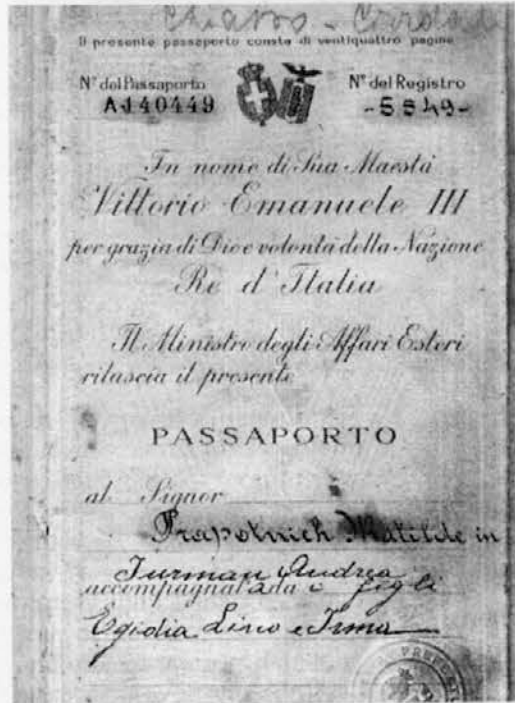 Chiavos - Cordoba
Il presente passaporto consta di ventiquattro pagine
N° del Passaporto
N° del Registro
AJ40449
- 5549 -
In nome di Sua Maestà
Vittorio Emanuele III
per grazia di Dio e volontà della Nazione
Re d'Italia
Il Ministro degli Affari Esteri
rilascia il presente
PASSAPORTO
al Signor
Prapotnich Matilde in
Jurman Andrea
accompagnata da i figli
Egidia Lino e Irma